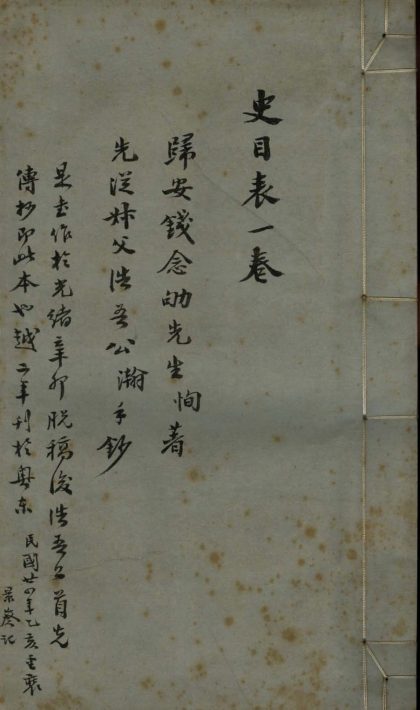 史目表一卷
歸安錢念劬先生恂著
先從叔父浩吾公瀚手鈔
是書作於光緒辛卯脫稿後浩吾公首先
傳抄即此本也越二年刊於粵東
民國廿四年乙亥重裝
景葵記